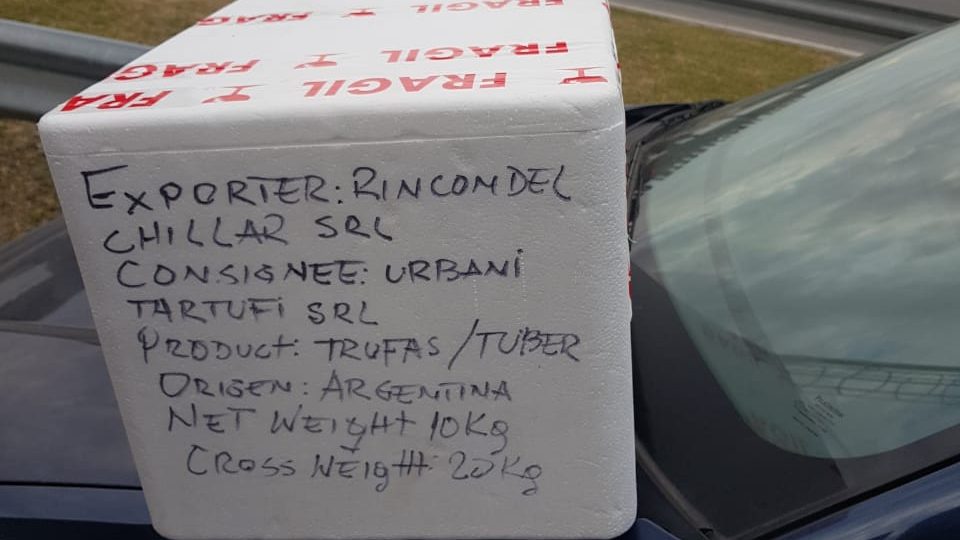 FRAGIL
FRAG FRAGIL FRAGIL
FRA FRAGIL FRAGIL
EXPORTER: RINCOMDEL
CHILLAR SRL
CONSIGNEE: URBANi
TARTUFi SRL
PRODUCt: TRUFAS/TUBER
ORIGEN: ARGENTINA
NET WEigHt 10Kg
CROSS WEigHt: 20Kg